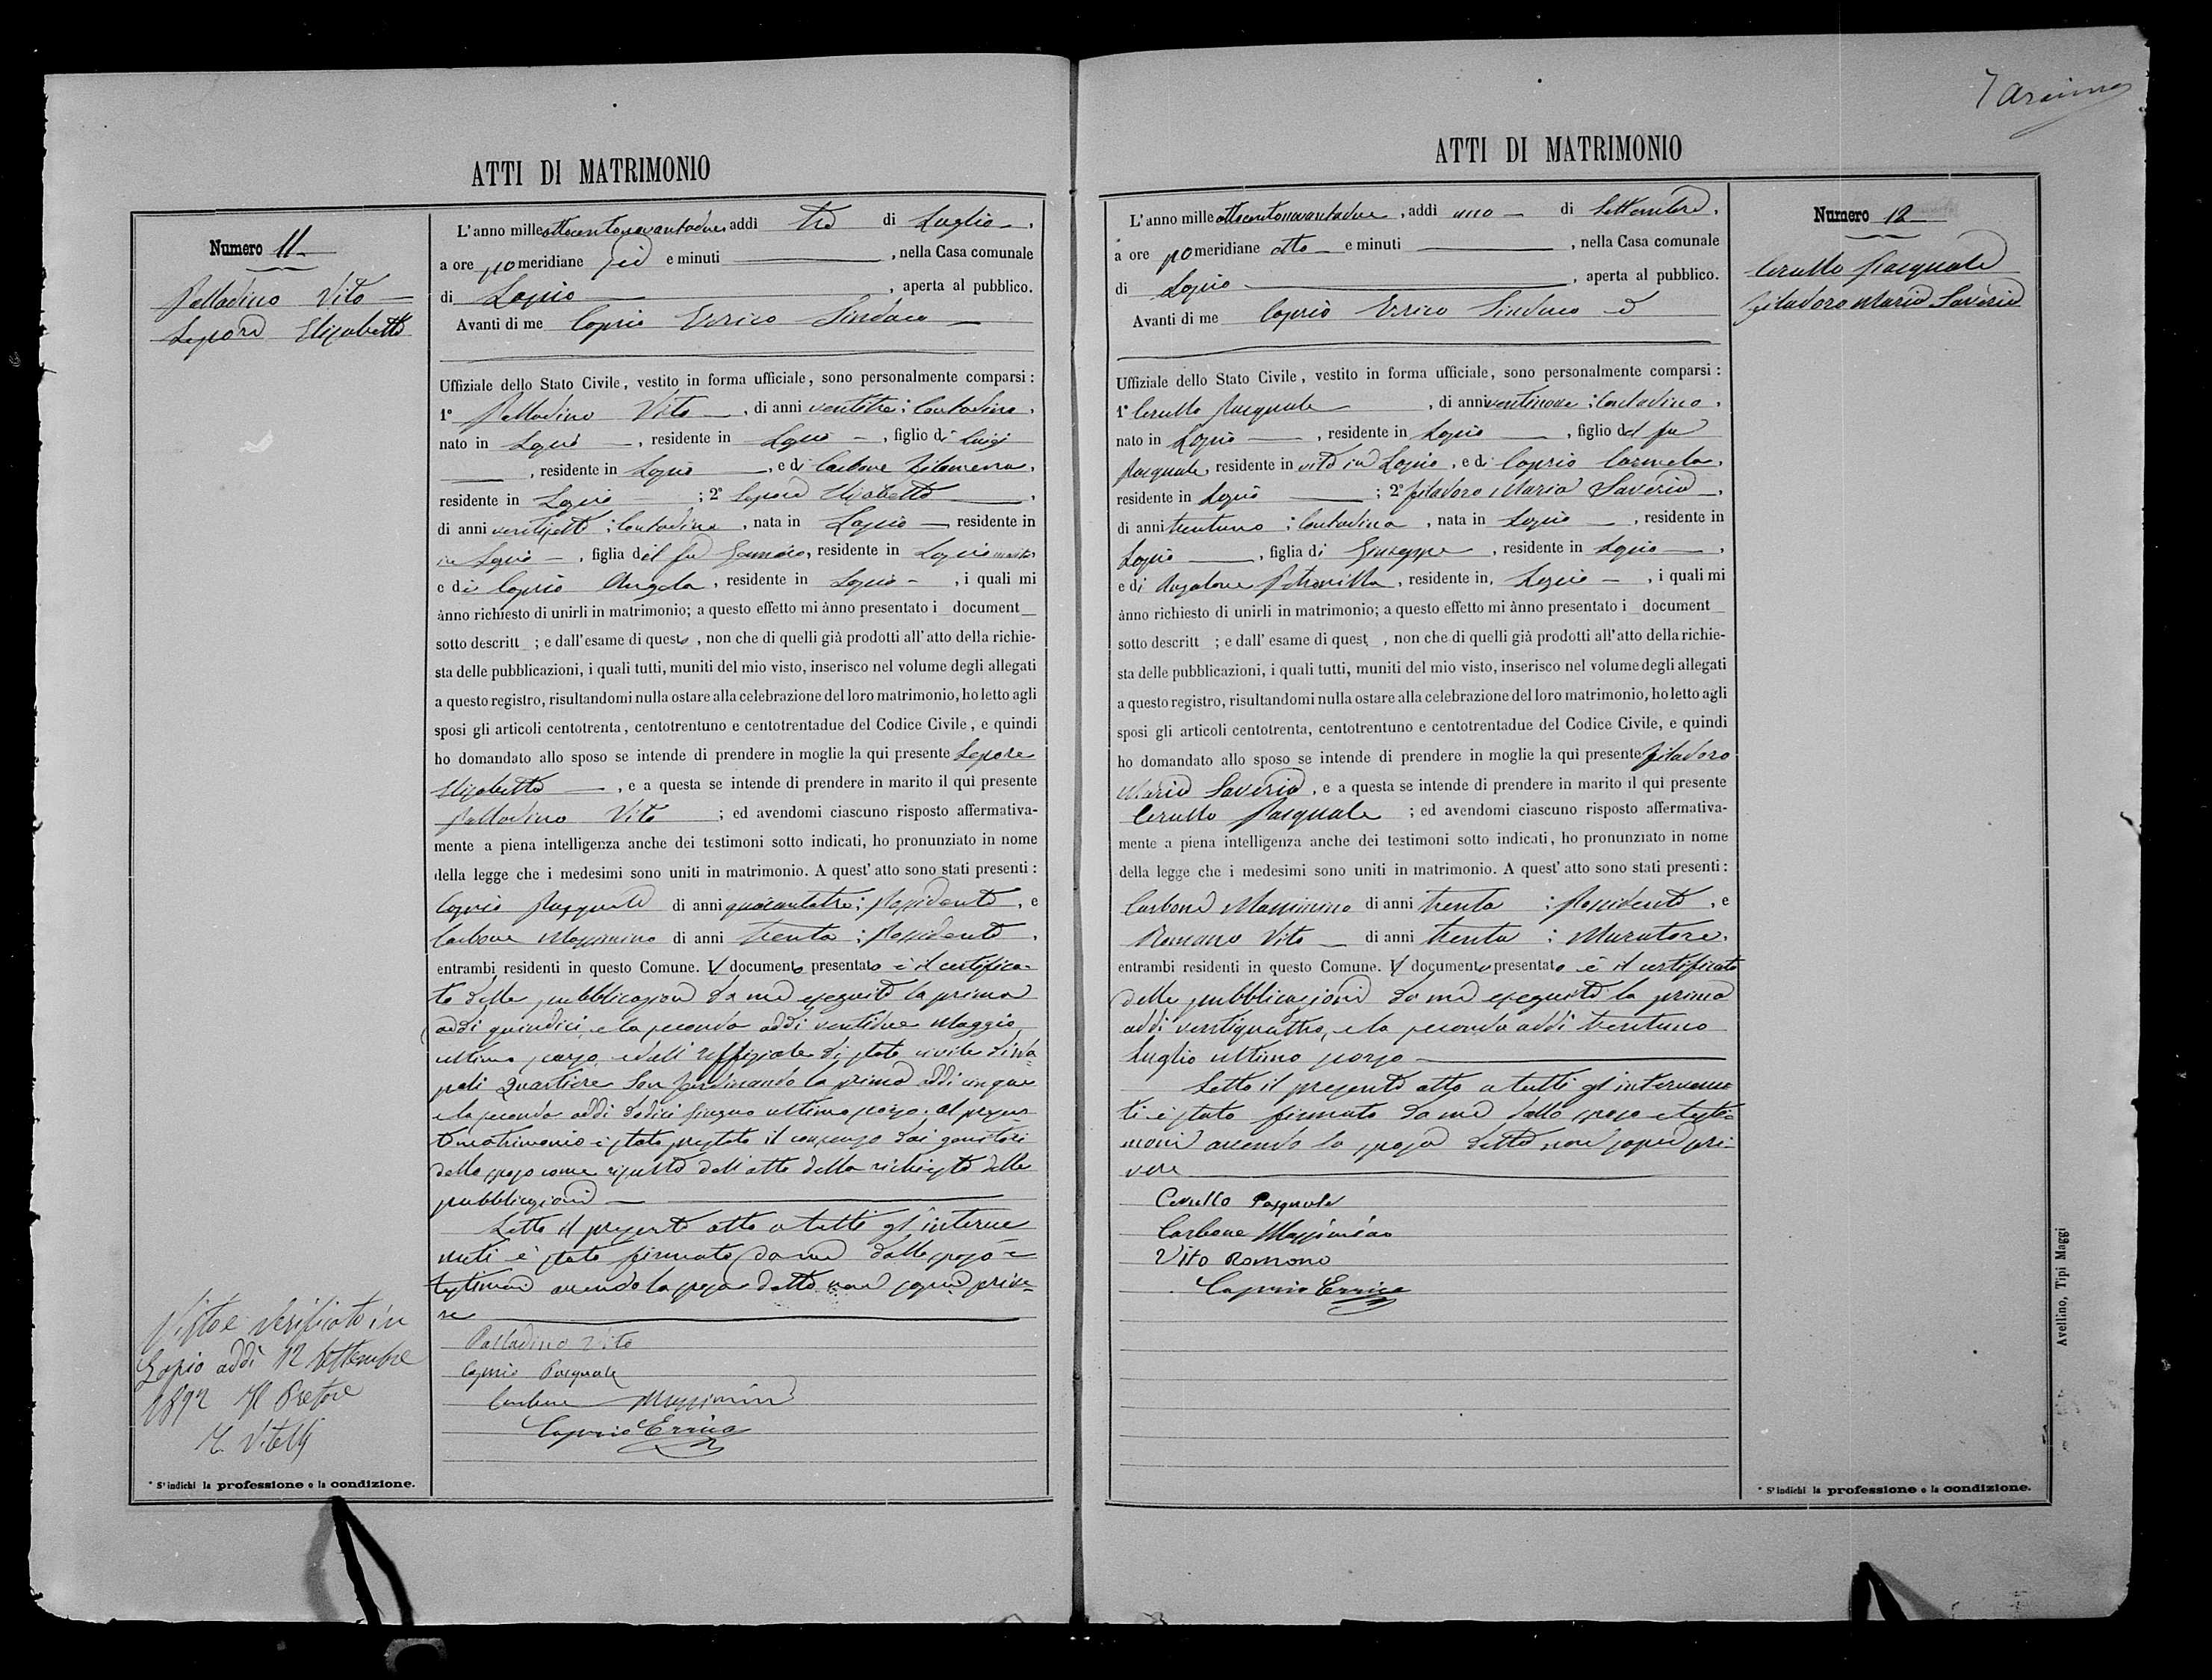 ATTI DI MATRIMONIO
Numero 11
Palladino Vito
Lepore Elisabetta
L'anno mille ottocentonovantadue, addì tre di Luglio,
a ore pomeridiane sei e minuti , nella Casa comunale
di Lapio , aperta al pubblico.
Avanti di me Caprio Errico Sindaco
Uffiziale dello Stato Civile, vestito in forma ufficiale, sono personalmente comparsi:
1° Palladino Vito , di anni ventitre; Contadino,
nato in Lapio , residente in Lapio , figlio di Luigi
, residente in Lapio , e di Carbone Filomena,
residente in Lapio ; 2° Lepore Elisabetta ,
di anni ventisette; Contadina , nata in Lapio residente in
in Lapio , figlia del fu , residente in Lapio
e di Caprio Angela , residente in Lapio , i quali mi
ànno richiesto di unirli in matrimonio; a questo effetto mi ànno presentato i document
sotto descritt ; e dall'esame di questo , non che di quelli già prodotti all'atto della richie-
sta delle pubblicazioni, i quali tutti, muniti del mio visto, inserisco nel volume degli allegati
a questo registro, risultandomi nulla ostare alla celebrazione del loro matrimonio, ho letto agli
sposi gli articoli centotrenta, centotrentuno e centotrentadue del Codice Civile, e quindi
ho domandato allo sposo se intende di prendere in moglie la qui presente Lepore
Elisabetta , e a questa se intende di prendere in marito il qui presente
Palladino Vito ; ed avendomi ciascuno risposto affermativa-
mente a piena intelligenza anche dei testimoni sotto indicati, ho pronunziato in nome
della legge che i medesimi sono uniti in matrimonio. A quest'atto sono stati presenti:
Caprio Pasquale di anni quarantatre; Possidente , e
Carbone Massimino di anni trenta ; Possidente ,
entrambi residenti in questo Comune. Il documento presentato è il certifica-
to delle pubblicazioni da me eseguite la prima
addì quindici e la seconda addì ventidue Maggio
ultimo scorso e dall'Uffiziale di stato civile di Na-
poli Quartiere San Ferdinando la prima addì cinque
e la seconda addì dodici Giugno ultimo scorso. Al presen-
te matrimonio è stato prestato il consenso dai genitori
dello sposo come risulta dall'atto della richiesta delle
pubblicazioni
Letto il presente atto a tutti gl'interve
nuti è stato firmato da me dallo sposo e
testimoni avendo la sposa detto non sapere scrive-
re
Palladino Vito
Caprio Pasquale
Carbone Massimino
Caprio Errico
Visto e verificato in
Lapio addì 12 Settembre
1892 Il Pretore
Vitelli
* S'indichi la professione o la condizione.
ATTI DI MATRIMONIO
Numero 12
Cerullo Pasquale
Filadoro Maria Saveria
L'anno mille ottocentonovantadue, addì uno di Settembre,
a ore pomeridiane otto e minuti , nella Casa comunale
di Lapio , aperta al pubblico.
Avanti di me Caprio Errico Sindaco
Uffiziale dello Stato Civile, vestito in forma ufficiale, sono personalmente comparsi:
1° Cerullo Pasquale , di anni ventinove; Contadino,
nato in Lapio , residente in Lapio , figlio del fu
Pasquale, residente in vita in Lapio , e di Caprio Carmela,
residente in Lapio ; 2° Filadoro Maria Saveria ,
di anni trentuno ; Contadina , nata in Lapio , residente in
Lapio , figlia di Giuseppe , residente in Lapio ,
e di Petronilla , residente in, Lapio , i quali mi
ànno richiesto di unirli in matrimonio; a questo effetto mi ànno presentato i document
sotto descritt ; e dall'esame di quest , non che di quelli già prodotti all'atto della richie-
sta delle pubblicazioni, i quali tutti, muniti del mio visto, inserisco nel volume degli allegati
a questo registro, risultandomi nulla ostare alla celebrazione del loro matrimonio, ho letto agli
sposi gli articoli centotrenta, centotrentuno e centotrentadue del Codice Civile, e quindi
ho domandato allo sposo se intende di prendere in moglie la qui presente Filadoro
Maria Saveria , e a questa se intende di prendere in marito il qui presente
Cerullo Pasquale ; ed avendomi ciascuno risposto affermativa-
mente a piena intelligenza anche dei testimoni sotto indicati, ho pronunziato in nome
della legge che i medesimi sono uniti in matrimonio. A quest'atto sono stati presenti:
Carbone Massimino di anni trenta ; Possidente , e
Romano Vito di anni trenta ; Muratore,
entrambi residenti in questo Comune. Il documento presentato è il certificato
delle pubblicazioni da me eseguite la prima
addì ventiquattro, e la seconda addì trentuno
Luglio ultimo scorso
Letto il presente atto a tutti gl'intervenu
ti è stato firmato da me dallo sposo e testi-
moni avendo la sposa detto non sapere scri-
vere
Cerullo Pasquale
Carbone Massimino
Vito Romano
Caprio Errico
* S'indichi la professione o la condizione.
Avellino, Tipi Maggi